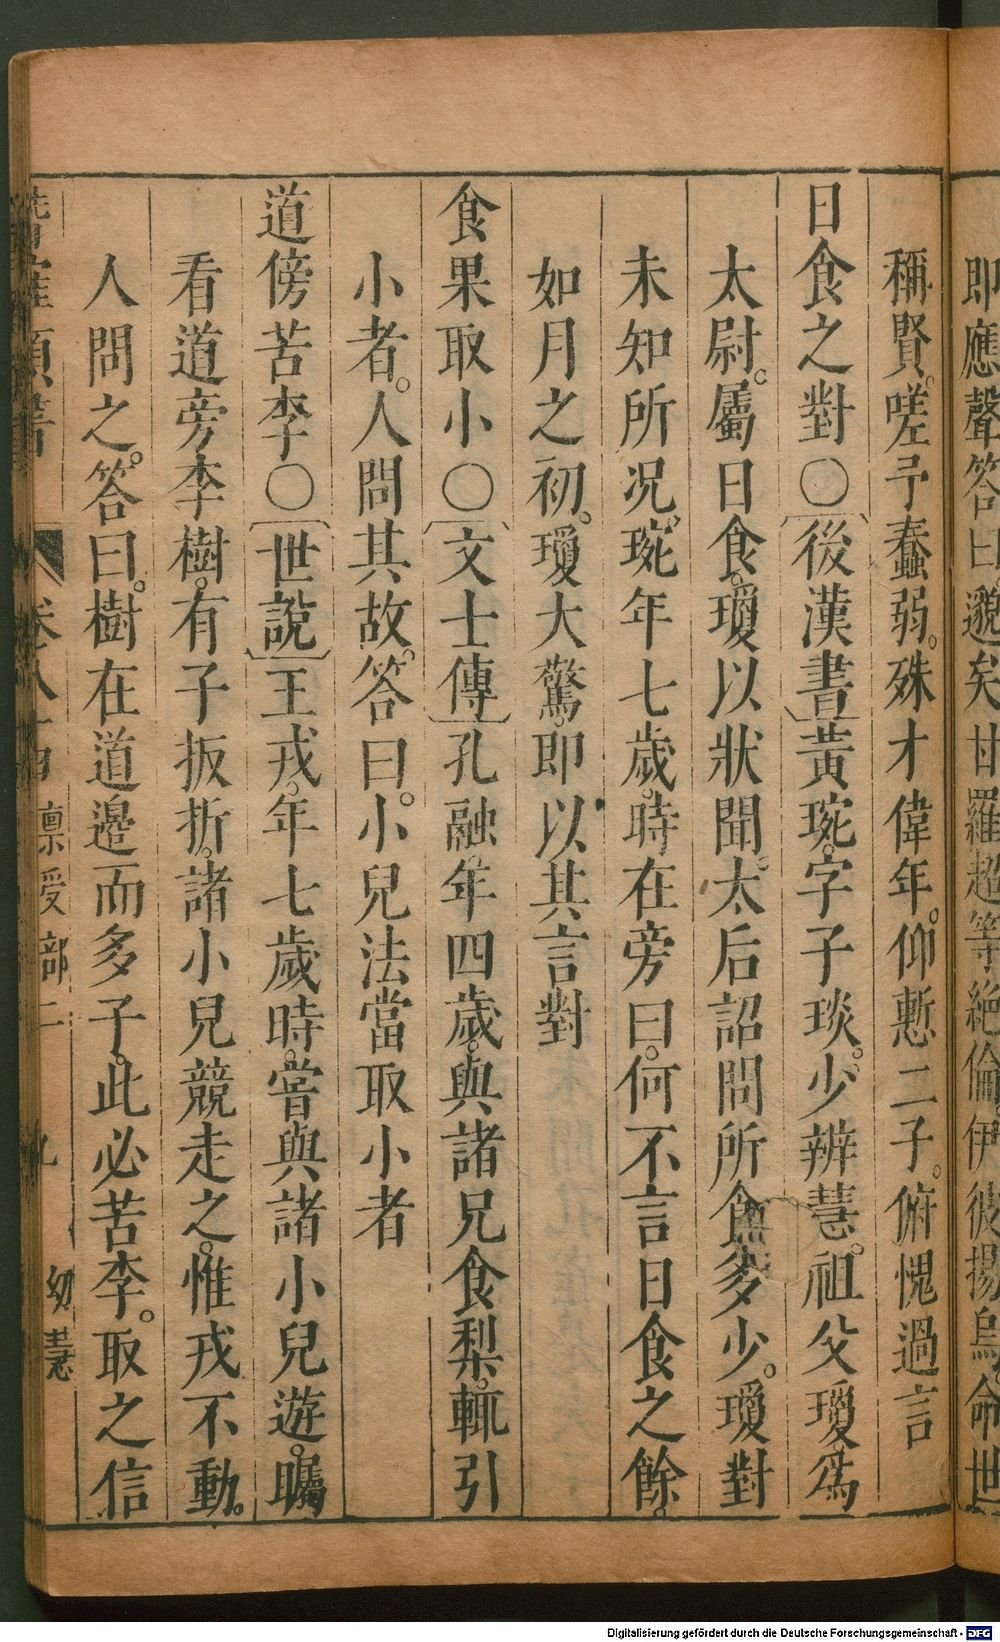 即應聲答曰邈矣甘羅超等絶倫伊彼揚烏命世
稱賢嗟予蠢弱殊才偉年仰慙二子俯愧過言
日食之對〇後漢書黃琬字子琰少辨慧祖父瓊爲
太尉屬日食瓊以狀聞太后詔問所食多少瓊對
未知所况琬年七歲時在旁曰何不言日食之餘
如月之初瓊大驚即以其言對
食果取小〇文士傳孔融年四歲與諸兄食梨輒引
小者人問其故答曰小兒法當取小者
道傍苦李〇世說王戎年七歲時嘗與諸小兒遊矚
看道旁李樹有子扳折諸小兒競走之惟戎不動
人問之答曰樹在道邊而多子此必苦李取之信
卷八十四 禀受部二 九 幼慧
Digitalisierung gefördert durch die Deutsche Forschungsgemeinschaft - DFG